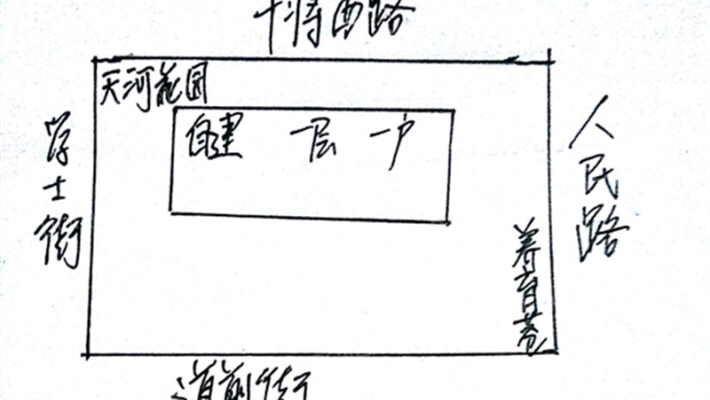 干将西路
天河花园
自建 一层 一户
学士街
人民路
养育巷
道前街